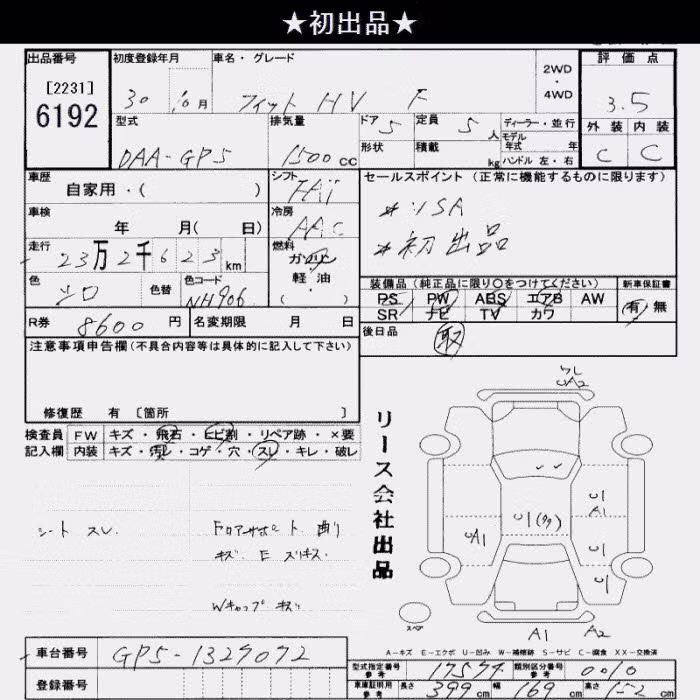 ★初出品★
出品番号 初度登録年月 車名・グレード 2WD・4WD 評価点
[2231]
6192
30 10月 フィット HV F 3.5
型式 排気量 ドア 5 定員 5人 ディーラー・並行 外装 内装
DAA-GP5 1500cc 形状 積載 kg モデル年式 年 C C
ハンドル 左・右
車歴 シフト セールスポイント(正常に機能するものに限ります)
自家用・( ) FAT
車検 冷房 *USA
年 月( 日) AAC *初出品
走行 燃料
23万2千623km ガソリン
軽油
( ・ )
色 色替 色コード
シロ NH906
装備品(純正品に限り○をつけてください) 新車保証書
PS PW ABS エアB AW 有 無
SR ナビ TV カワ
R券 8600円 名変期限 月 日 後日品 取
注意事項申告欄(不具合内容等は具体的に記入して下さい)
修復歴 有 〔箇所 〕
検査員 FW キズ・飛石・ヒビ割・リペア跡・×要
記入欄 内装 キズ・汚レ・コゲ・穴・スレ・キレ・破レ
リース会社出品
シート スレ
キズ E スリキズ
Wキャップ キズ
A2
U1
A1
UA1 U1(多) U1
U1
スペア
A1 A2
A-キズ E-エクボ U-凹み W-補修跡 S-サビ C-腐食 XX-交換済
車台番号 GP5-1327072
登録番号
型式指定番号 参考 17574 類別区分番号 参考 0010
車庫証明用 参考 長さ 399cm 幅 169cm 高さ 152cm